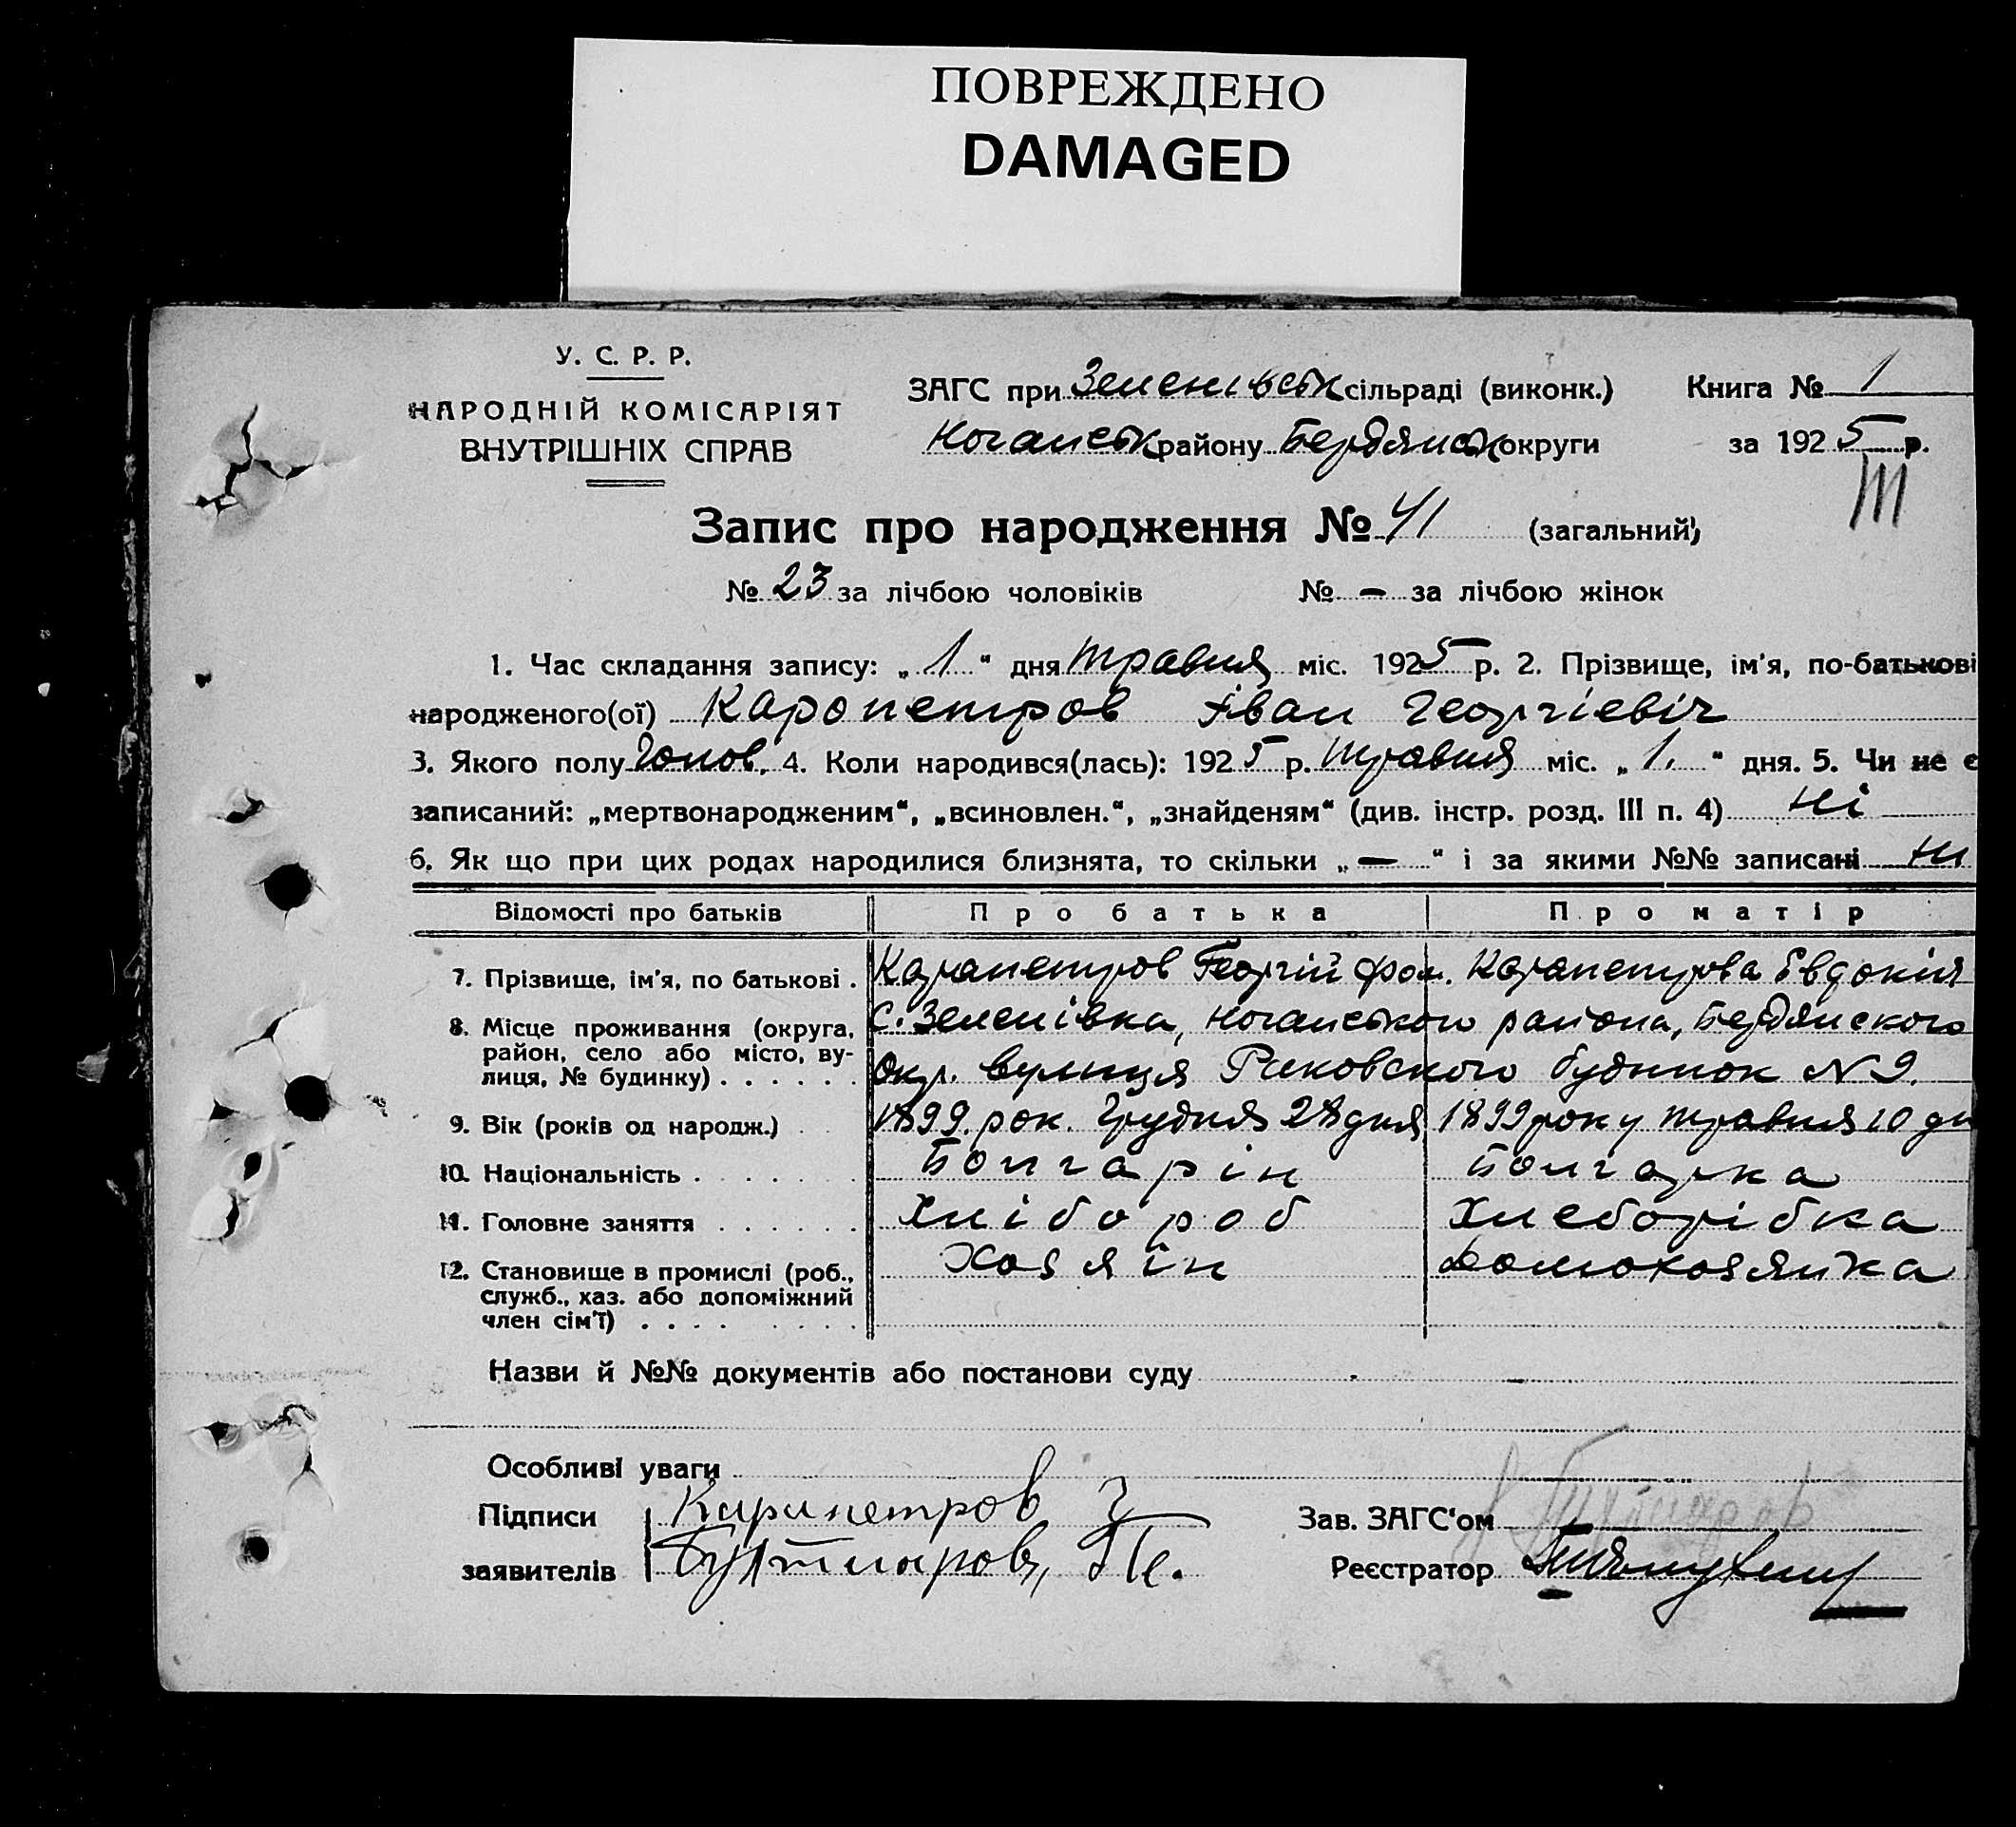 ПОВРЕЖДЕНО
DAMAGED
У. С. Р. Р.
НАРОДНІЙ КОМІСАРІЯТ
ВНУТРІШНІХ СПРАВ
ЗАГС при Зеленівськ сільраді (виконк.)
Ногайськ району Бердянськ округи
Книга № 1
за 1925 р.
III
Запис про народження № 41 (загальний)
№ 23 за лічбою чоловіків № — за лічбою жінок
1. Час складання запису: „ 1 “ дня травня міс. 1925 р. 2. Прізвище, ім'я, по-батькові
народженого(ої) Каропетров Іван Георгіевіч
3. Якого полу Чолов. 4. Коли народився(лась): 1925 р. травня міс. „ 1. “ дня. 5. Чи не є
записаний: „мертвонародженим“, „всиновлен.“, „знайденям“ (див. інстр. розд. III п. 4) Ні
6. Як що при цих родах народилися близнята, то скільки „ — “ і за якими №№ записані Ні
Відомості про батьків Про батька Про матір
7. Прізвище, ім'я, по батькові . Карапетров Георгій Карапетрова Евдокія
8. Місце проживання (округа, район, село або місто, вулиця, № будинку) . . . . . . С. Зеленівка, Ногайського района, Бердянского
Окр. вулиця Раковского будинок № 9.
9. Вік (років од народж.) . . 1899. рок. Грудня 28 дня 1899 року травня 10 дн
10. Національність . . . . . . Болгарін Болгарка
11. Головне заняття . . . . . . Хлібороб Хлеборібка
12. Становище в промислі (роб., служб., хаз. або допоміжний член сім'ї) . . . . . . . . Хозяїн Домохозяйка
Назви й №№ документів або постанови суду
Особливі уваги
Підписи Карапетров Г
заявителів
Зав. ЗАГС'ом
Реєстратор